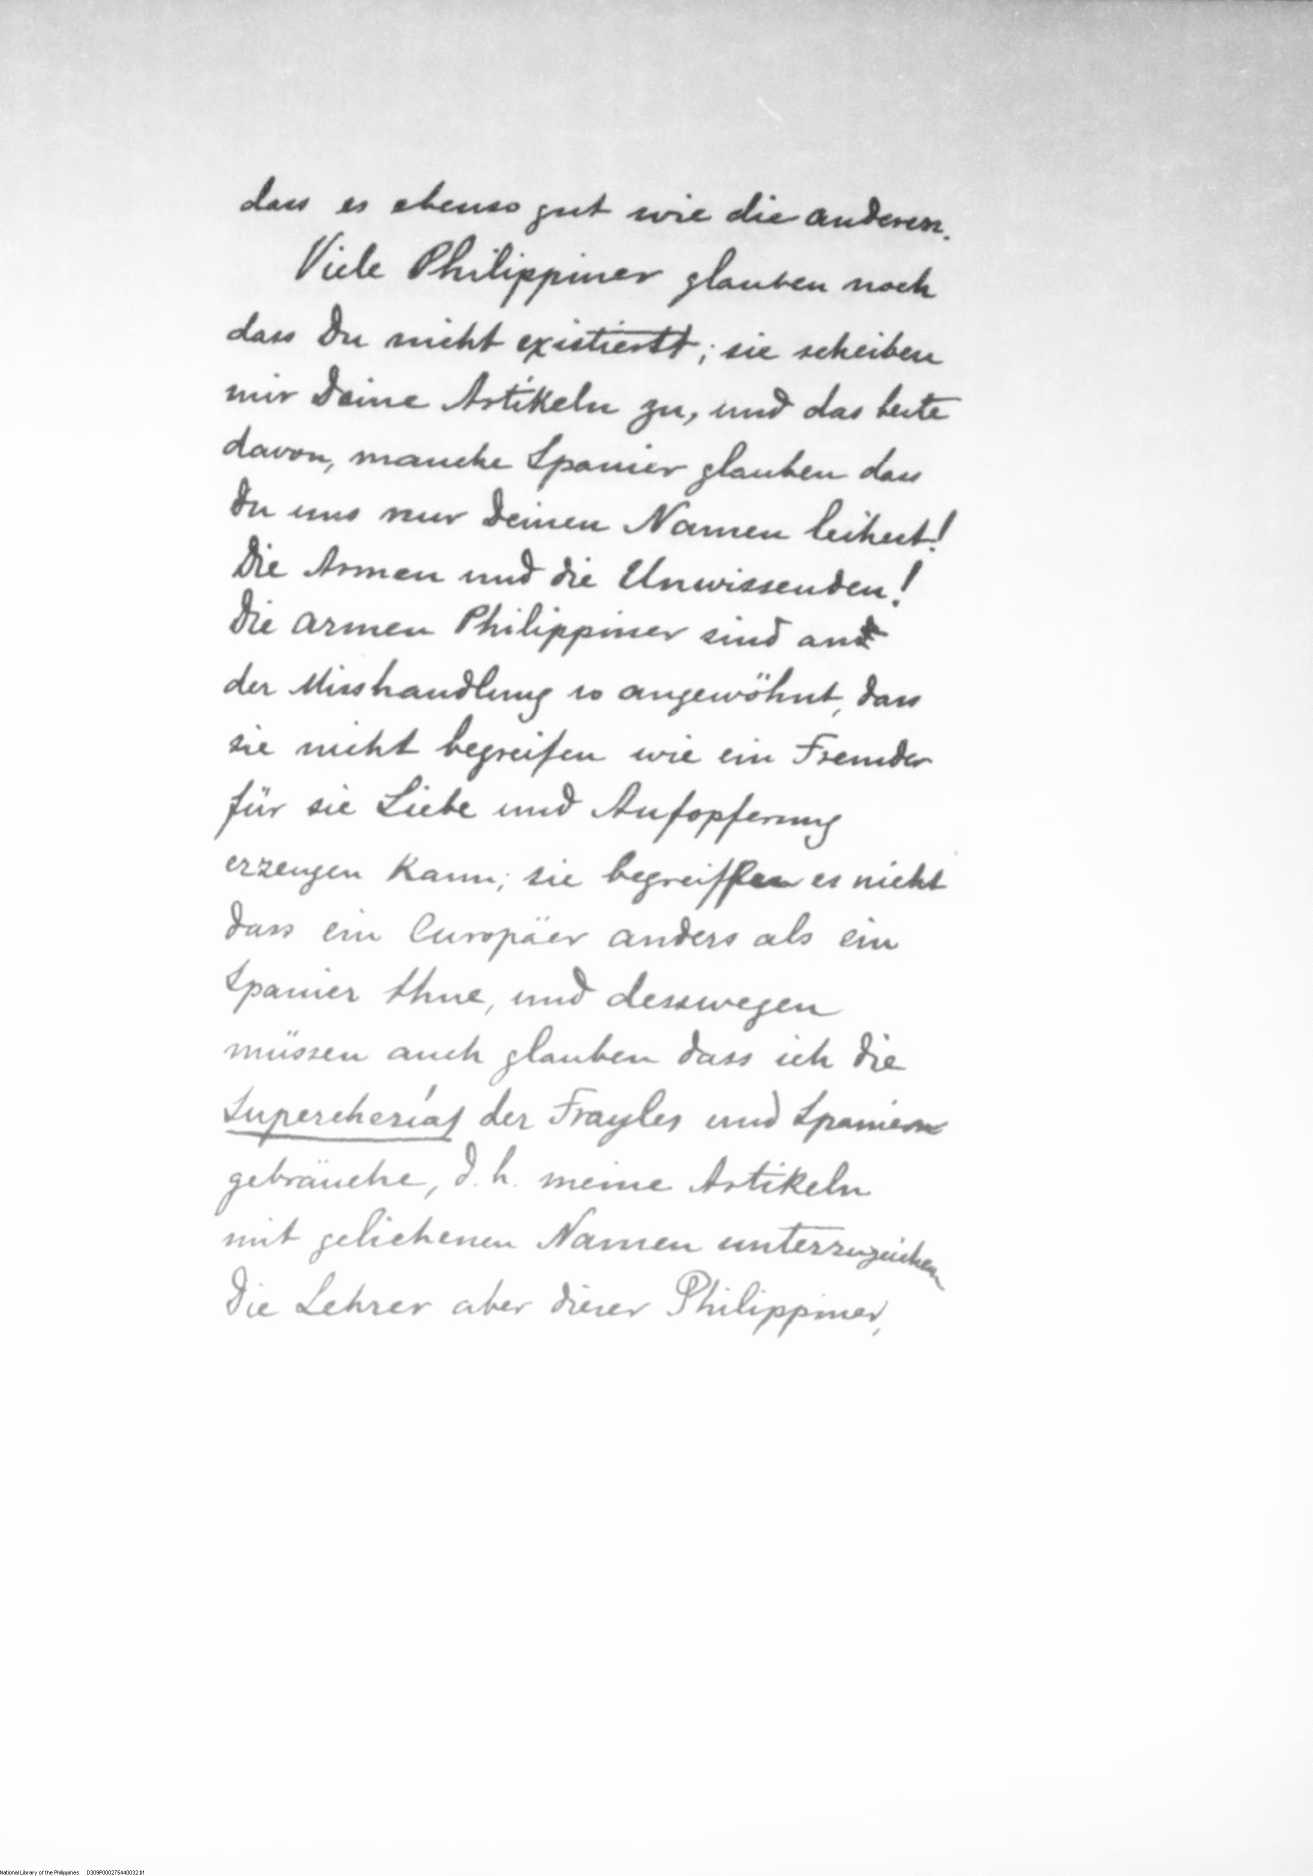 dass es ebenso gut wie die anderen.
Viele Philippiner glauben noch
dass Du nicht existierst; sie scheiben
mir Deine Artikeln zu, und das beste
davon, manche Spanier glauben dass
Du uns nur Deinen Namen leihest!
Die Armen und die Unwissenden!
Die armen Philippiner sind an
der Misshandlung so angewöhnt, dass
sie nicht begreifen wie ein Fremder
für sie Liebe und Aufopferung
erzeugen kann; sie begreiffen es nicht
dass ein Europäer anders als ein
Spanier thue, und desswegen
müssen auch glauben dass ich die
Supercherías der Frayles und Spaniern
gebräuche, d. h. meine Artikeln
mit geliehenen Namen unterzuzeichen
Die Lehrer aber dieser Philippiner,
National Library of the Philippines D309P000275440032.tif